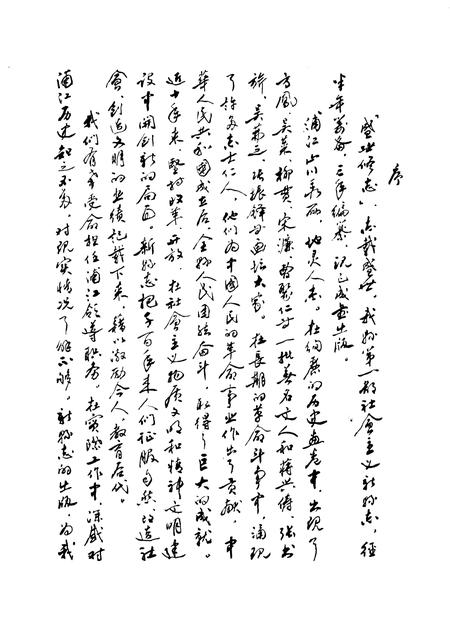 序
“盛世修志”，志载盛世。我县第一部社会主义新县志，经
半年筹备，三年编纂，现已成书出版。
浦江山川秀丽，地灵人杰。在绚丽的历史画卷中，出现了
方凤、吴莱、柳贯、宋濂、曹聚仁等一批著名文人和蒋兴俦、张书
旂、吴茀之、张振铎等画坛大家。在长期的革命斗争中，涌现
了许多志士仁人，他们为中國人民的革命事业作出了贡献。中
華人民共和國成立后，全县人民团结奋斗，取得了巨大的成就。
近十年来，坚持改革、开放，在社會主义物质文明和精神文明建
设中开创新的局面。新县志把千百年来人们征服自然、改造社
會、创造文明的业绩记载下来，藉以激励今人、教育后代。
我们有幸受命担任浦江领导职务，在实际工作中深感对
浦江历史知之不多，对现实情况了解不够。新县志的出版，为我